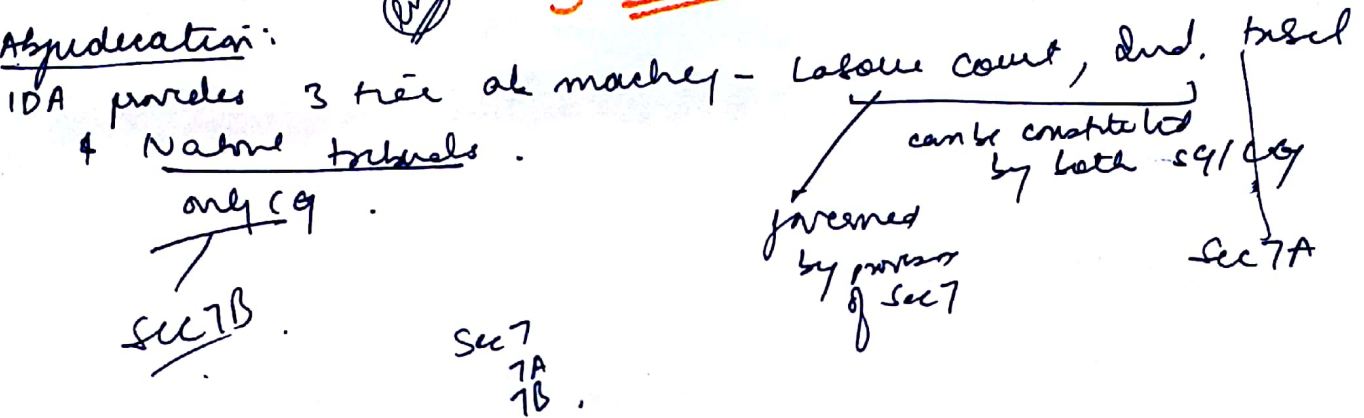 Adjudication:
IDA provides 3 tier machey - Labour court, Ind. tribl
& National tribunals.
can be constituted
by both SG/CG
only CG.
governed
by provison
of Sec 7
Sec 7A
Sec 7B.
Sec 7
7A
7B.